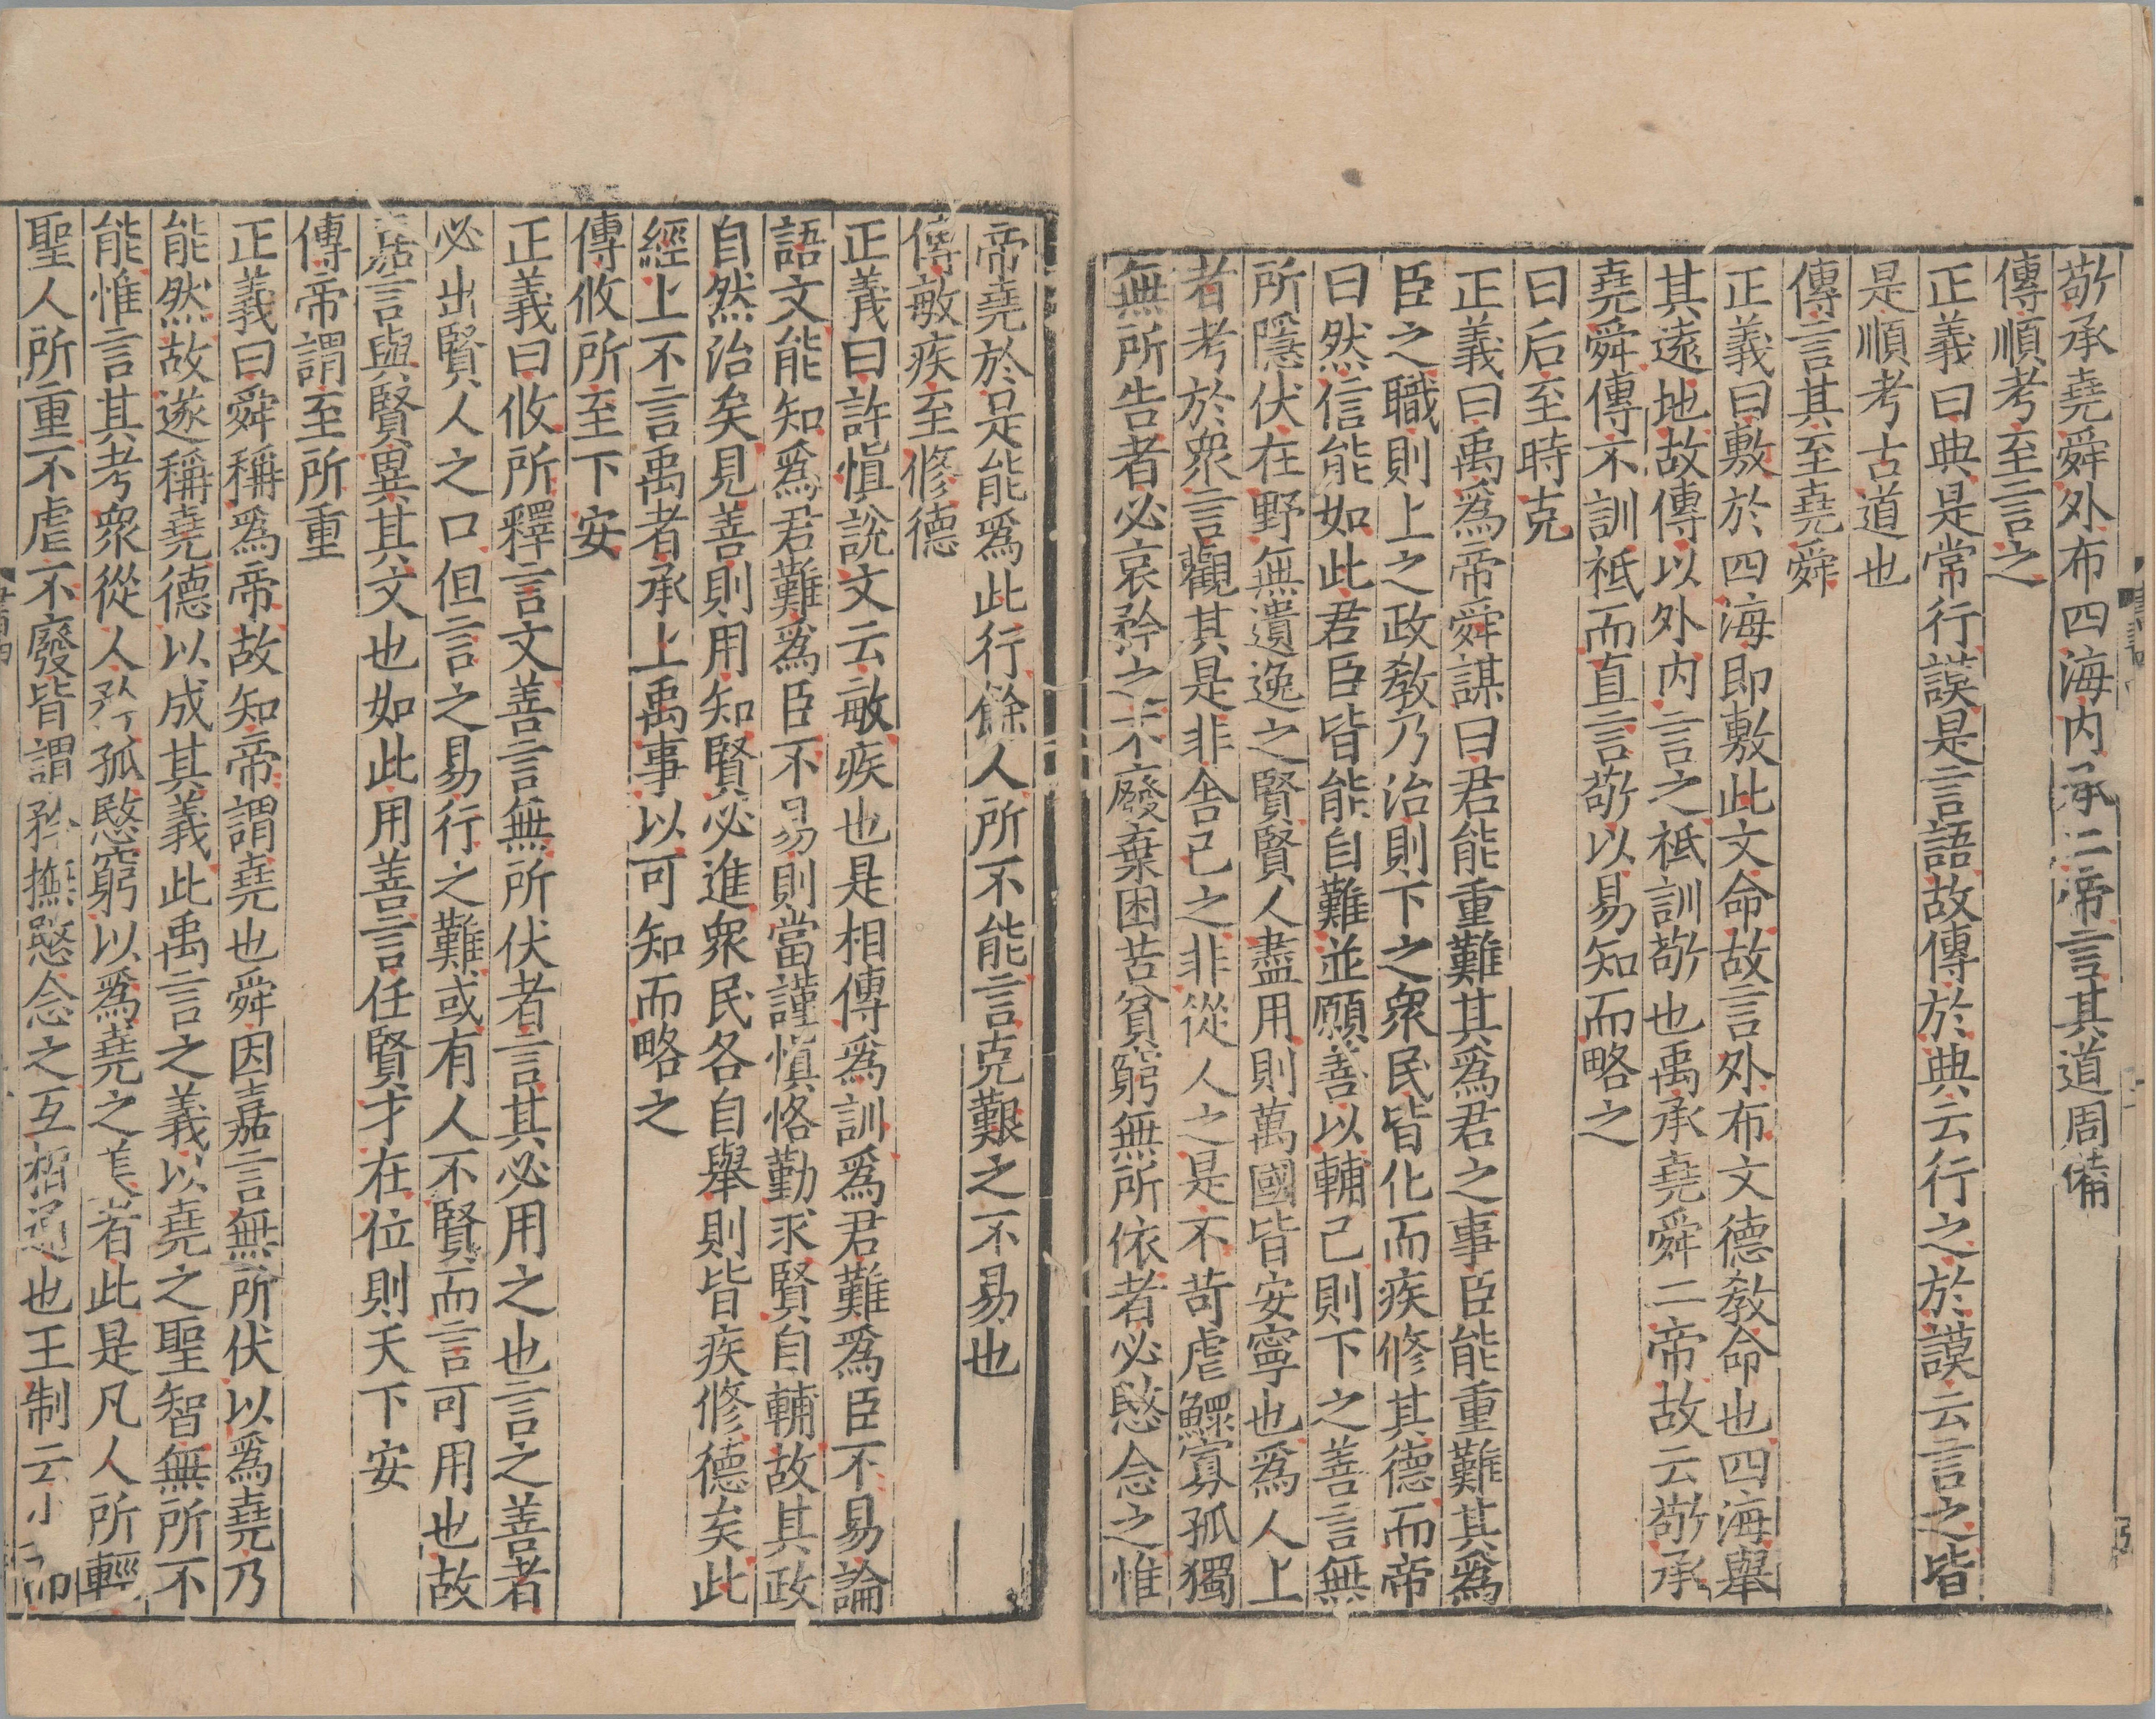 敬承堯舜外布四海内承二帝言其道周備
傳順考至言之
正義曰典是常行謨是言語故傳於典云行之於謨云言之皆
是順考古道也
傳言其至堯舜
正義曰敷於四海即敷此文命故言外布文德教命也四海舉
其遠地故傳以外内言之祗訓敬也禹承堯舜二帝故云敬承
堯舜傳不訓祗而直言敬以易知而略之
曰后至時克
正義曰禹爲帝舜謀曰君能重難其爲君之事臣能重難其爲
臣之職則上之政教乃治則下之衆民皆化而疾修其德而帝
曰然信能如此君臣皆能自難並願善以輔己則下之善言無
所隱伏在野無遺逸之賢賢人盡用則萬國皆安寧也爲人上
者考於衆言觀其是非舍己之非從人之是不苛虐鰥寡孤獨
無所告者必哀矜之不廢棄困苦貧窮無所依者必愍念之惟
帝堯於是能爲此行餘人所不能言克艱之不易也
傳敏疾至修德
正義曰許慎說文云敏疾也是相傳爲訓爲君難爲臣不易論
語文能知爲君難爲臣不易則當謹慎恪勤求賢自輔故其政
自然治矣見善則用知賢必進衆民各自舉則皆疾修德矣此
經上不言禹者承上禹事以可知而略之
傳攸所至下安
正義曰攸所釋言文善言無所伏者言其必用之也言之善者
必出賢人之口但言之易行之難或有人不賢而言可用也故
嘉言與賢異其文也如此用善言任賢才在位則天下安
傳帝謂至所重
正義曰舜稱爲帝故知帝謂堯也舜因嘉言無所伏以爲堯乃
能然故遂稱堯德以成其義此禹言之義以堯之聖智無所不
能惟言其考衆從人矜孤愍窮以爲堯之美者此是凡人所輕
聖人所重不虐不廢皆謂矜撫愍念之互相通也王制云小而